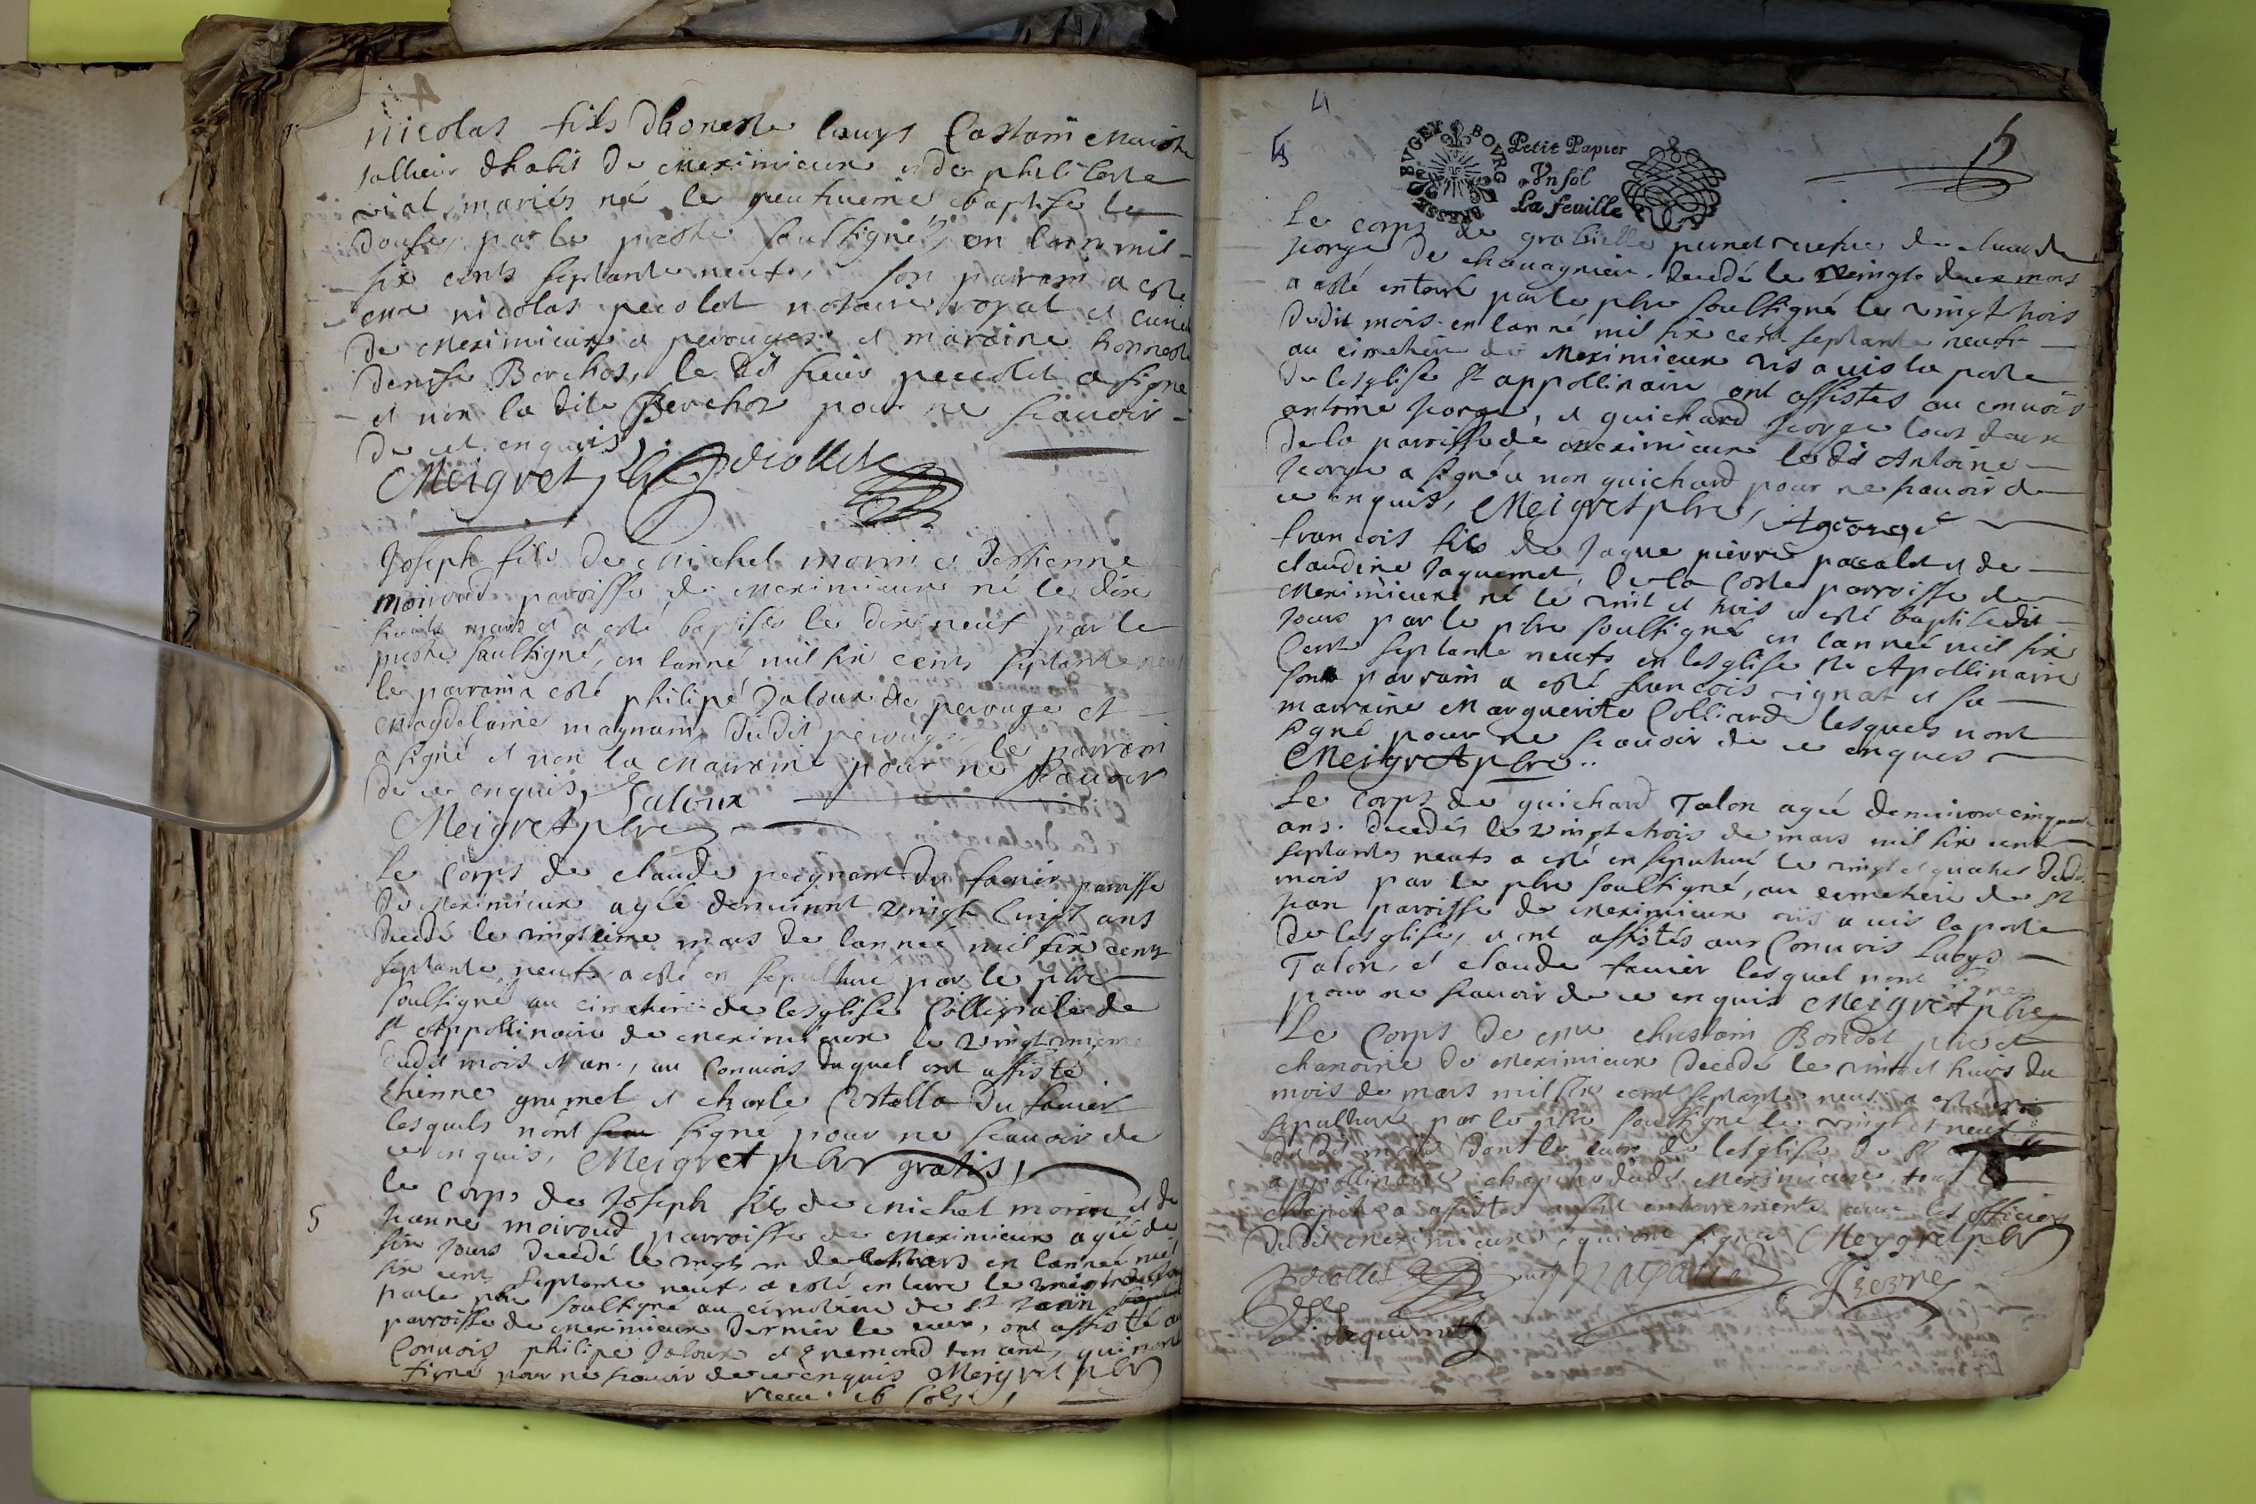 nicolas fils dhoneste louys Castain maistre
tallieur dhabit de meximieux et de philiberte
vial mariés né le neufvieme baptise le
douse par le prestre soussigné en lann mil
six cents septante neufs, son parrain a esté
me nicolas pecolet notaire royal et curial
de meximieux et perouges et maraine honneste
denise Berchos, le dit sieur pecolet a signé
et non la dite Berchos pour ne scauoir
de cet enquis
Meigret pbr
Joseph fils de michel morin et destienne
moiroud parroisse de meximieux né le dix
mars et a esté baptisés le dix neuf par le
prestre soussigné, en lanné mil six cents septante neuf
le parrain a esté philipé Jaloux de perouge et
magdelaine magnain dudit perouge le parrain
a signé et non la marraine pour ne scauoir
de ce enquis, Jaloux
Meigret pbre
Le Corps de claude peignant du fauier parroisse
de meximieux agée denuiront vingt ans
decedé le vingtieme mars de lannee mil six cents
septante neufs a esté en sepulture par le pbre
soussigné au cimetiere de lesglise Collegiale de
st Appollinaire de meximieux le
dudit mois et an, au Conuois duquel ont assisté
Ehienne grumet et charle Costalla du fauier
lesquels nont signé pour ne scauoir de
ce enquis, Meigret pbr gratis,
5
le Corps de Joseph fils de michel morin et de
Jeanne moiroud parroisse de meximieux agée de
six Jours decedé le vingt de mars en lannee mil
six cent septante neufs a esté en terre le
par le pbr soussigné au cimetiere de st Jean
parroisse de meximieux dernier le cuer, ont assisté au
Conuois philipe Jaloux et qui nont
signé pour ne scauoir de ce enquis Meigret pbr
receu 16 sols,
4
BRESSE BVGEY BOVRG
Petit Papier
Vn sol
La feuille
Le corps de grabielle perret veufue de claude
Jeorge de chauagnieu decedé le vingts deux mars
a esté enterré par le pbre soussigné le vingt trois
dudit mois en lanné mil six cent septante neufs
au cimetiere de meximieux vis a uis la porte
de lesglise st appollinaire ont assistes au conuois
antoine Jorge, et guichard Jeorge tous deux
de la parroisse de meximieux le dit Antoine
Jeorge a signé et non guichard pour ne scauoir de
ce enquis, Meigret pbre, AGeorge
francois fils de Jaque pierre pacalet et de
claudine Jaquemet, de la Coste parroisse de
meximieux né le vint et trois a esté baptise dit
Jours par le pbre soussigné en lannee mil six
Cents septante neufs en lesglise st Apollinaire
son parrain a esté francois vignat et sa
marraine marguerite Colliarde lesquels nont
signé pour ne scauoir de ce enques
Meigret pbre
Le Corps de guichard Talon agée denuiront cinquante
ans decedés le vingt trois de mars mil six cent
septantes neufs a esté en sepulture le vingt et quatres dudit
mois par le pbre soussigné, au cimetiere de st
Jean parroisse de meximieux vis a uis la porte
de lesglise, et ont assistés aux Conuois Louys
Talon, et claude fauier lesquel nont signé
pour ne scauoir de ce enquis Meigret pbre
Le Corps de me chrestain Bondet pbre et
chanoine de meximieux decedé le vint et huis du
mois de mars mil six cent septante neuf a esté
sepulturé par le pbre soussigné le vingt et neuf
du dit mois dans le cuer de lesglise de st
appollinaire dudit meximieux, tout le
chapitre a assistes audit enterrements auec les officiers
dudit meximieux, qui ont signé Meygret pbr
Jaquemet